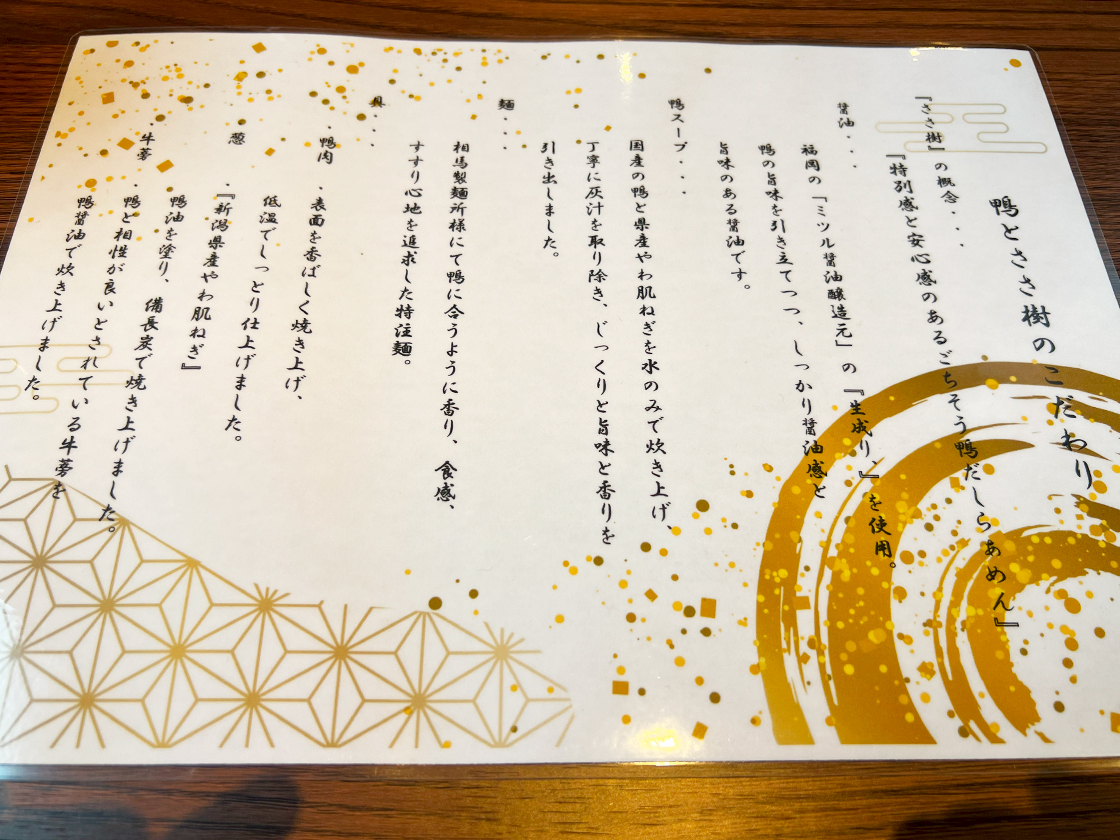 鴨とささ樹のこだわり
『ささ樹』の概念・・・
『特別感と安心感のあるごちそう鴨だしらぁめん』
醤油・・
福岡の「ミツル醤油醸造元」の『生成り、』を使用。
鴨の旨味を引き立てつつ、しっかり醤油感と
旨味のある醤油です。
鴨スープ・・・
国産の鴨と県産やわ肌ねぎを水のみで炊き上げ、
丁寧に灰汁を取り除き、じっくりと旨味と香りを
引き出しました。
麺・・・
相馬製麺所様にて鴨に合うように香り、食感、
すすり心地を追求した特注麺。
具・・・
・鴨肉・表面を香ばしく焼き上げ、
低温でしっとり仕上げました。
・葱・『新潟県産やわ肌ねぎ』
鴨油を塗り、備長炭で焼き上げました。
・牛蒡・鴨と相性が良いとされている牛蒡を
鴨醤油で炊き上げました。